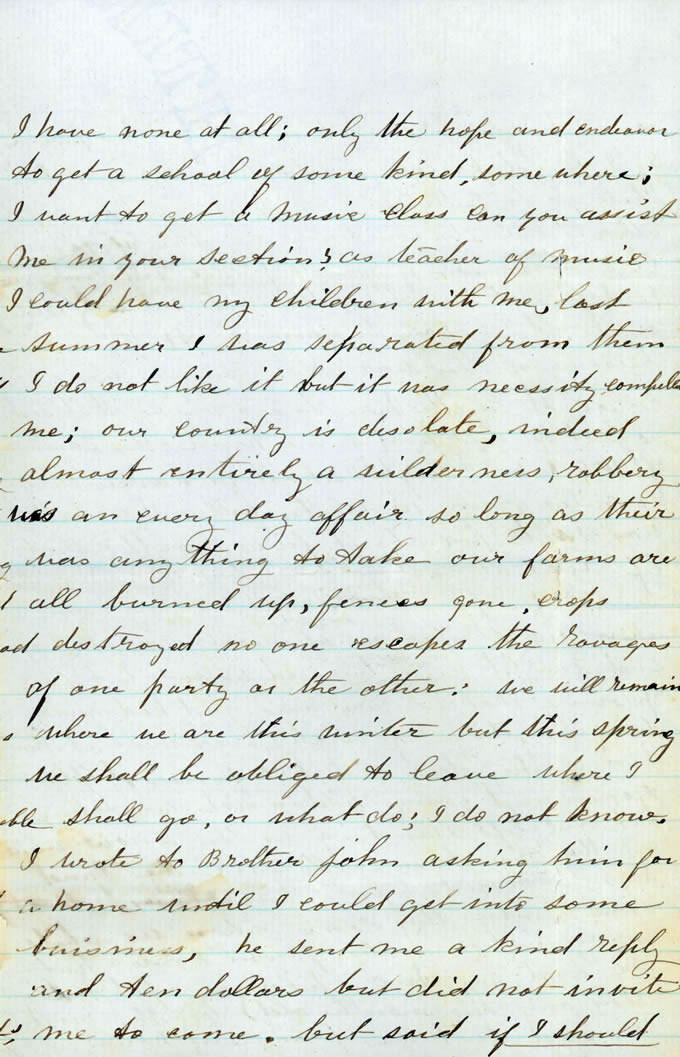 I have none at all; only the hope and endeavor
to get a school of some kind, some where;
I want to get a music class can you assist
me in your section? as teacher of music
I could have my children with me, last
summer I was separated from them
I do not like it but it was necessity compelled
me; our country is desolate, indeed
almost entirely a wilderness, robbery
was an every day affair so long as their
was any thing to take our farms are
all burned up, fences gone, crops
destroyed no one escapes the ravages
of one party or the other: we will remain
where we are this winter but this spring
we shall be obliged to leave where I
shall go, or what do; I do not know.
I wrote to Brother John asking him for
a home until I could get into some
buisiness, he sent me a kind reply
and ten dollars but did not invite
me to come. but said if I should